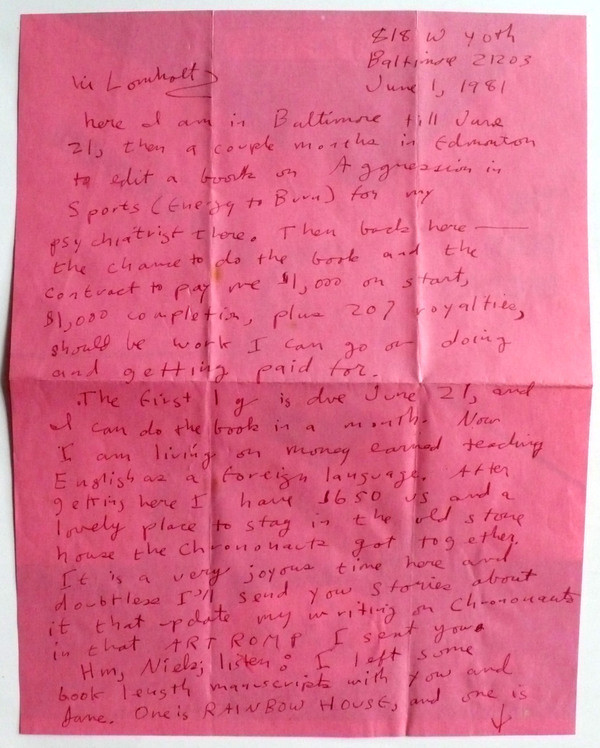 818 W 40th
Baltimore 21203
June 1, 1981
Lomholt
here I am in Baltimore till June
21, then a couple months in Edmonton
to edit a book on Aggression in
Sports (Energy to Burn) for my
psychiatrist there. Then back here —
the chance to do the book and the
contract to pay me $1,000 on start,
$1,000 completion, plus 20% royalties,
should be work I can go on doing
and getting paid for.
The first 1 g is due June 21, and
I can do the book in a month. Now
I am living on money earned teaching
English as a foreign language. After
getting here I have $650 US and a
lovely place to stay in the old stone
house the Chrononauts got together.
It is a very joyous time here and
doubtless I'll send you stories about
it that update my writing on Chrononauts
in that ART ROMP I sent you.
Hm, Niels; listen: I left some
book length manuscripts with you and
Jane. One is RAINBOW HOUSE, and one is
↓